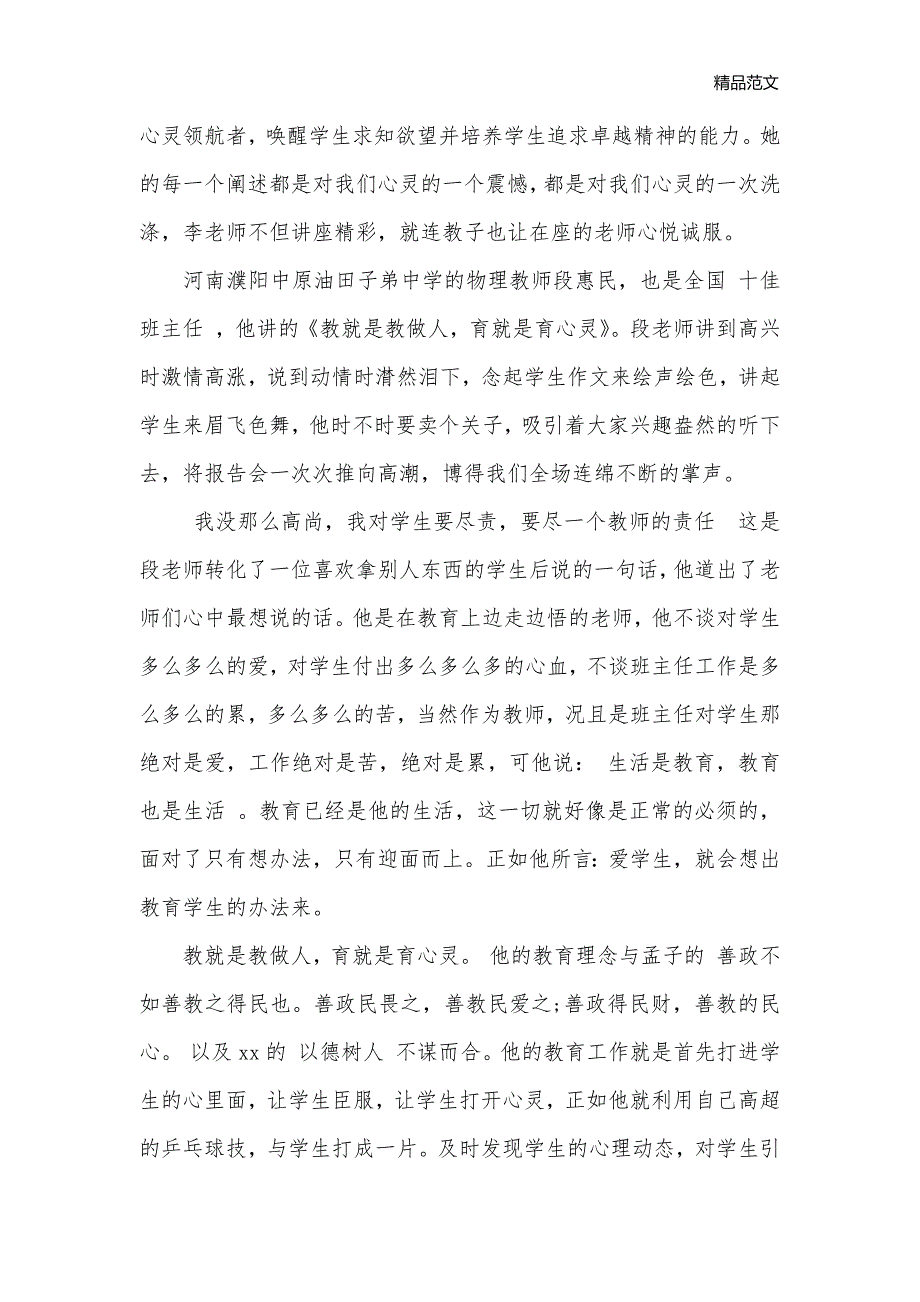 精品范文
心灵领航者，唤醒学生求知欲望并培养学生追求卓越精神的能力。她
的每一个阐述都是对我们心灵的一个震憾，都是对我们心灵的一次洗
涤，李老师不但讲座精彩，就连教子也让在座的老师心悦诚服。
河南濮阳中原油田子弟中学的物理教师段惠民，也是全国 十佳
班主任 ，他讲的《教就是教做人，育就是育心灵》。段老师讲到高兴
时激情高涨，说到动情时潸然泪下，念起学生作文来绘声绘色，讲起
学生来眉飞色舞，他时不时要卖个关子，吸引着大家兴趣盎然的听下
去，将报告会一次次推向高潮，博得我们全场连绵不断的掌声。
我没那么高尚，我对学生要尽责，要尽一个教师的责任 这是
段老师转化了一位喜欢拿别人东西的学生后说的一句话，他道出了老
师们心中最想说的话。他是在教育上边走边悟的老师，他不谈对学生
多么多么的爱，对学生付出多么多么多的心血，不谈班主任工作是多
么多么的累，多么多么的苦，当然作为教师，况且是班主任对学生那
绝对是爱，工作绝对是苦，绝对是累，可他说： 生活是教育，教育
也是生活 。教育已经是他的生活，这一切就好像是正常的必须的，
面对了只有想办法，只有迎面而上。正如他所言：爱学生，就会想出
教育学生的办法来。
教就是教做人，育就是育心灵。 他的教育理念与孟子的 善政不
如善教之得民也。善政民畏之，善教民爱之;善政得民财，善教的民
心。 以及 xx 的 以德树人 不谋而合。他的教育工作就是首先打进学
生的心里面，让学生臣服，让学生打开心灵，正如他就利用自己高超
的乒乓球技，与学生打成一片。及时发现学生的心理动态，对学生引